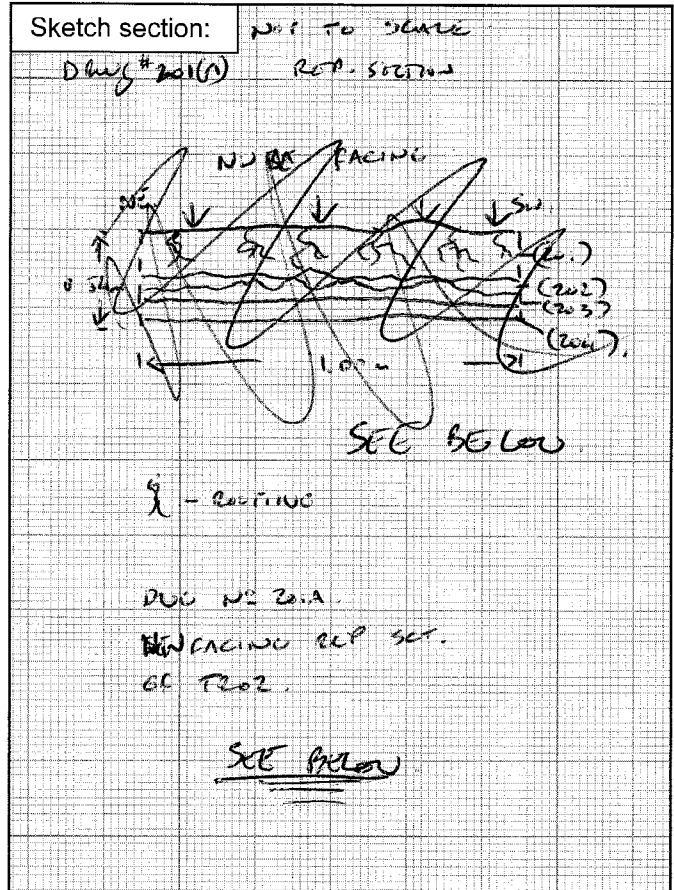 Sketch section: NOT TO SCALE
DRWG # 201(A) REP. SECTION
FACING
NE SW
(201)
(202)
(203)
(204).
SEE BELOW
- ROOTING
DWG Nº 20.A.
FACING REP SCT.
OF TR02.
SEE BELOW